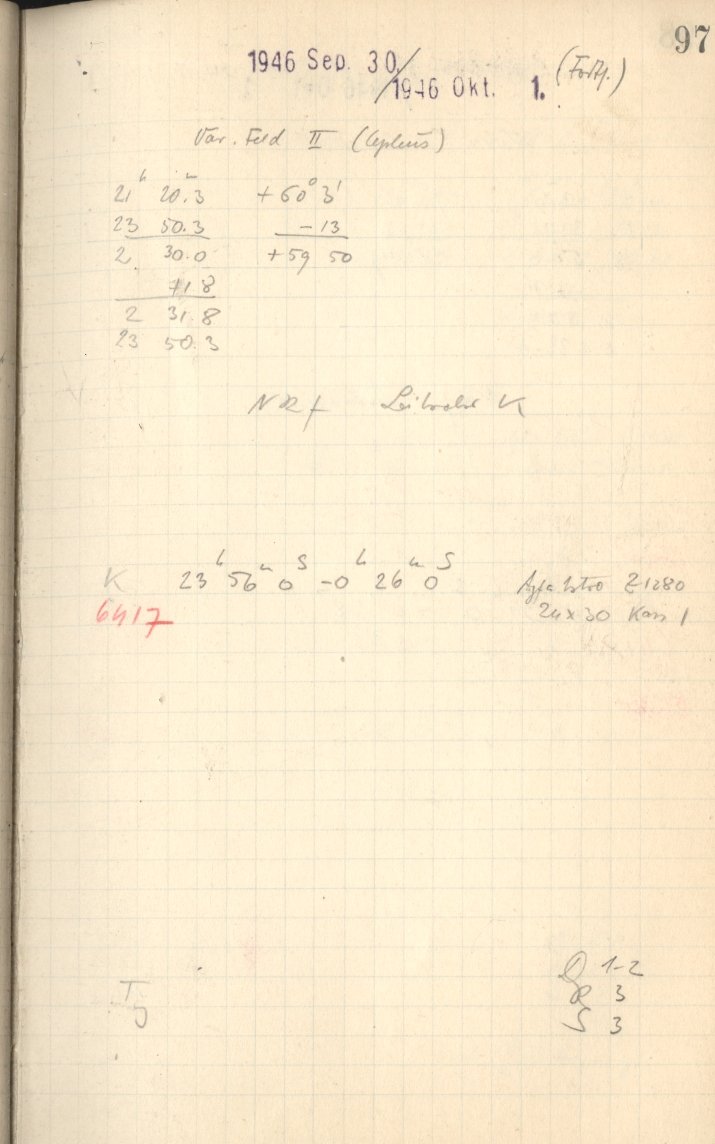 97
1946 Sep. 30. / 1946 Okt. 1. (Forts.)
Var. Feld II (Cepheus)
21h 20m.3 +60° 3'
23 50.3 -13
2 30.0 +59 50
+1.8
2 31.8
23 50.3
K
K 23h 56m 0s - 0h 26m 0s Agfa Astro Z1280
6417 24x30 Kass 1
1-2
R 3
S 3